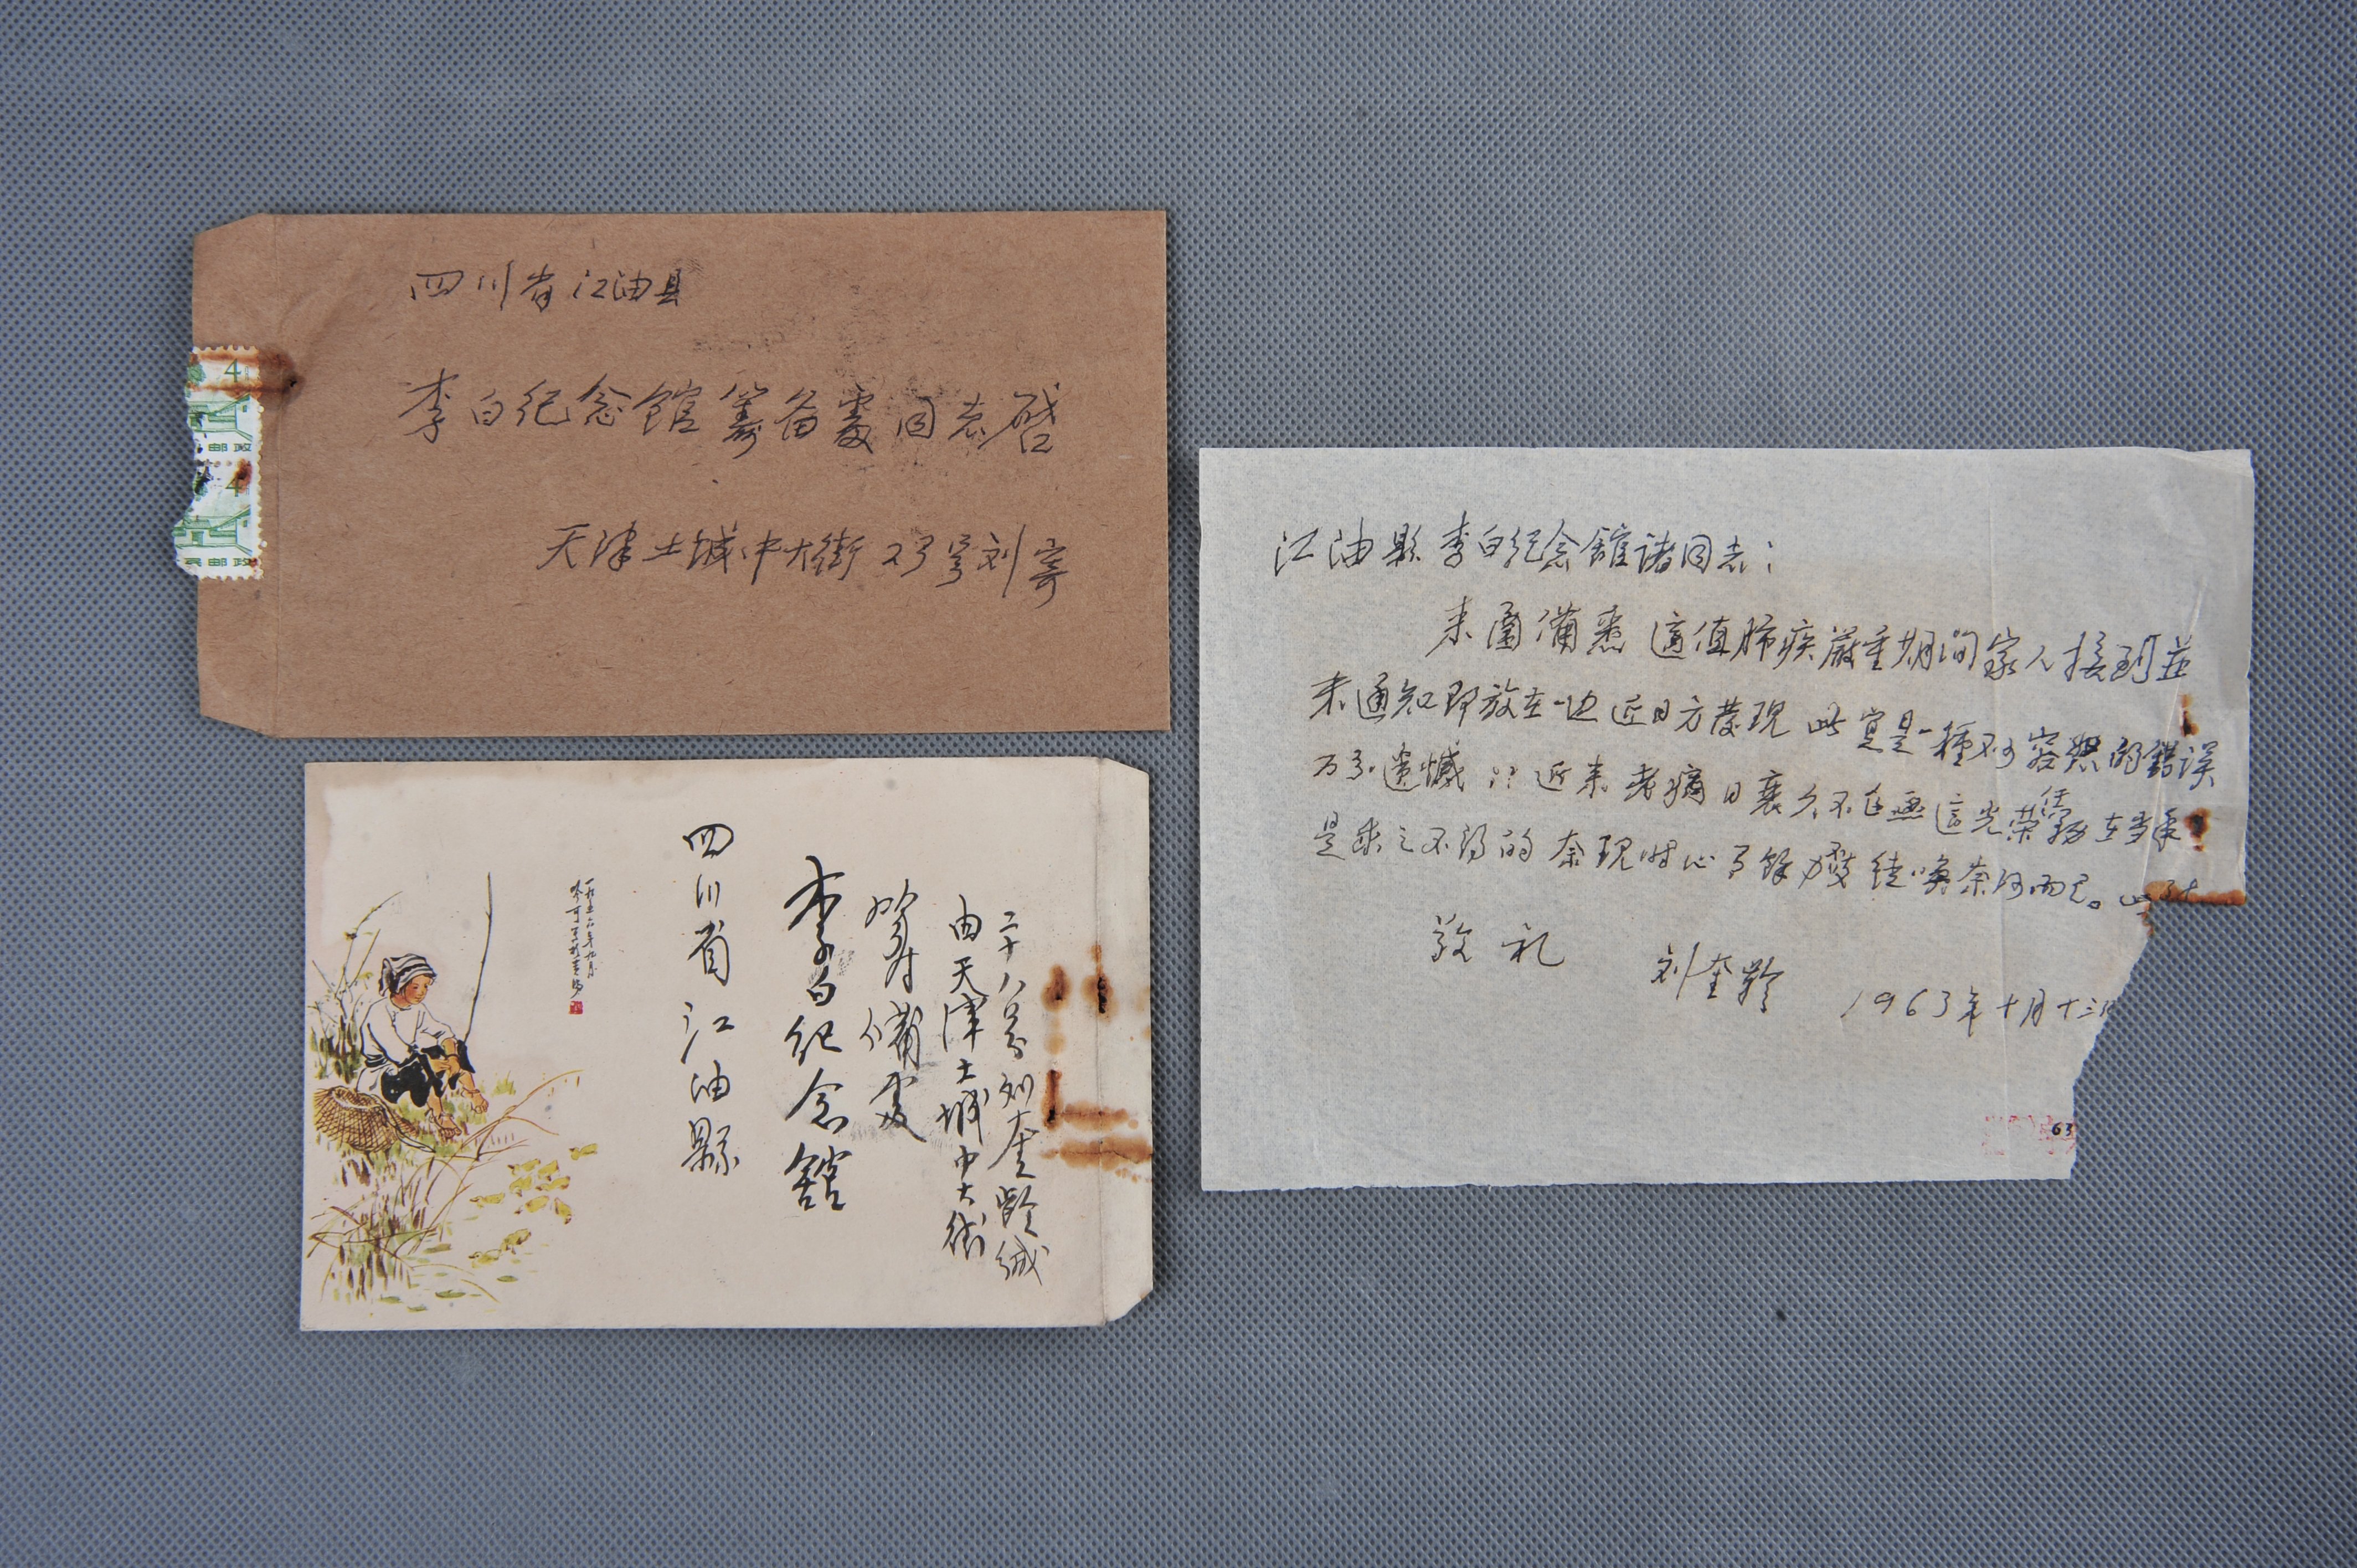 四川省江油县
李白纪念館筹备處同志启
天津土城中大街28号刘寄
4
邮政
4
邮政
四川省江油縣
李白纪念舘
筹備處
由天津土城中大街
二十八号刘奎齡缄
一九五六年九月
江油縣李白纪念舘诸同志：
来圅備悉 適值肺疾嚴重期间家人接到並
未通知即放在一边 近日方發現 此实是一種不可容恕的錯误
万分遗憾 近来老病日衰久不在画這光荣任務在当年
是求之不得的 奈現时心有餘力 奈何而已。此致
敬礼
刘奎齡
1963年十月十三日
63